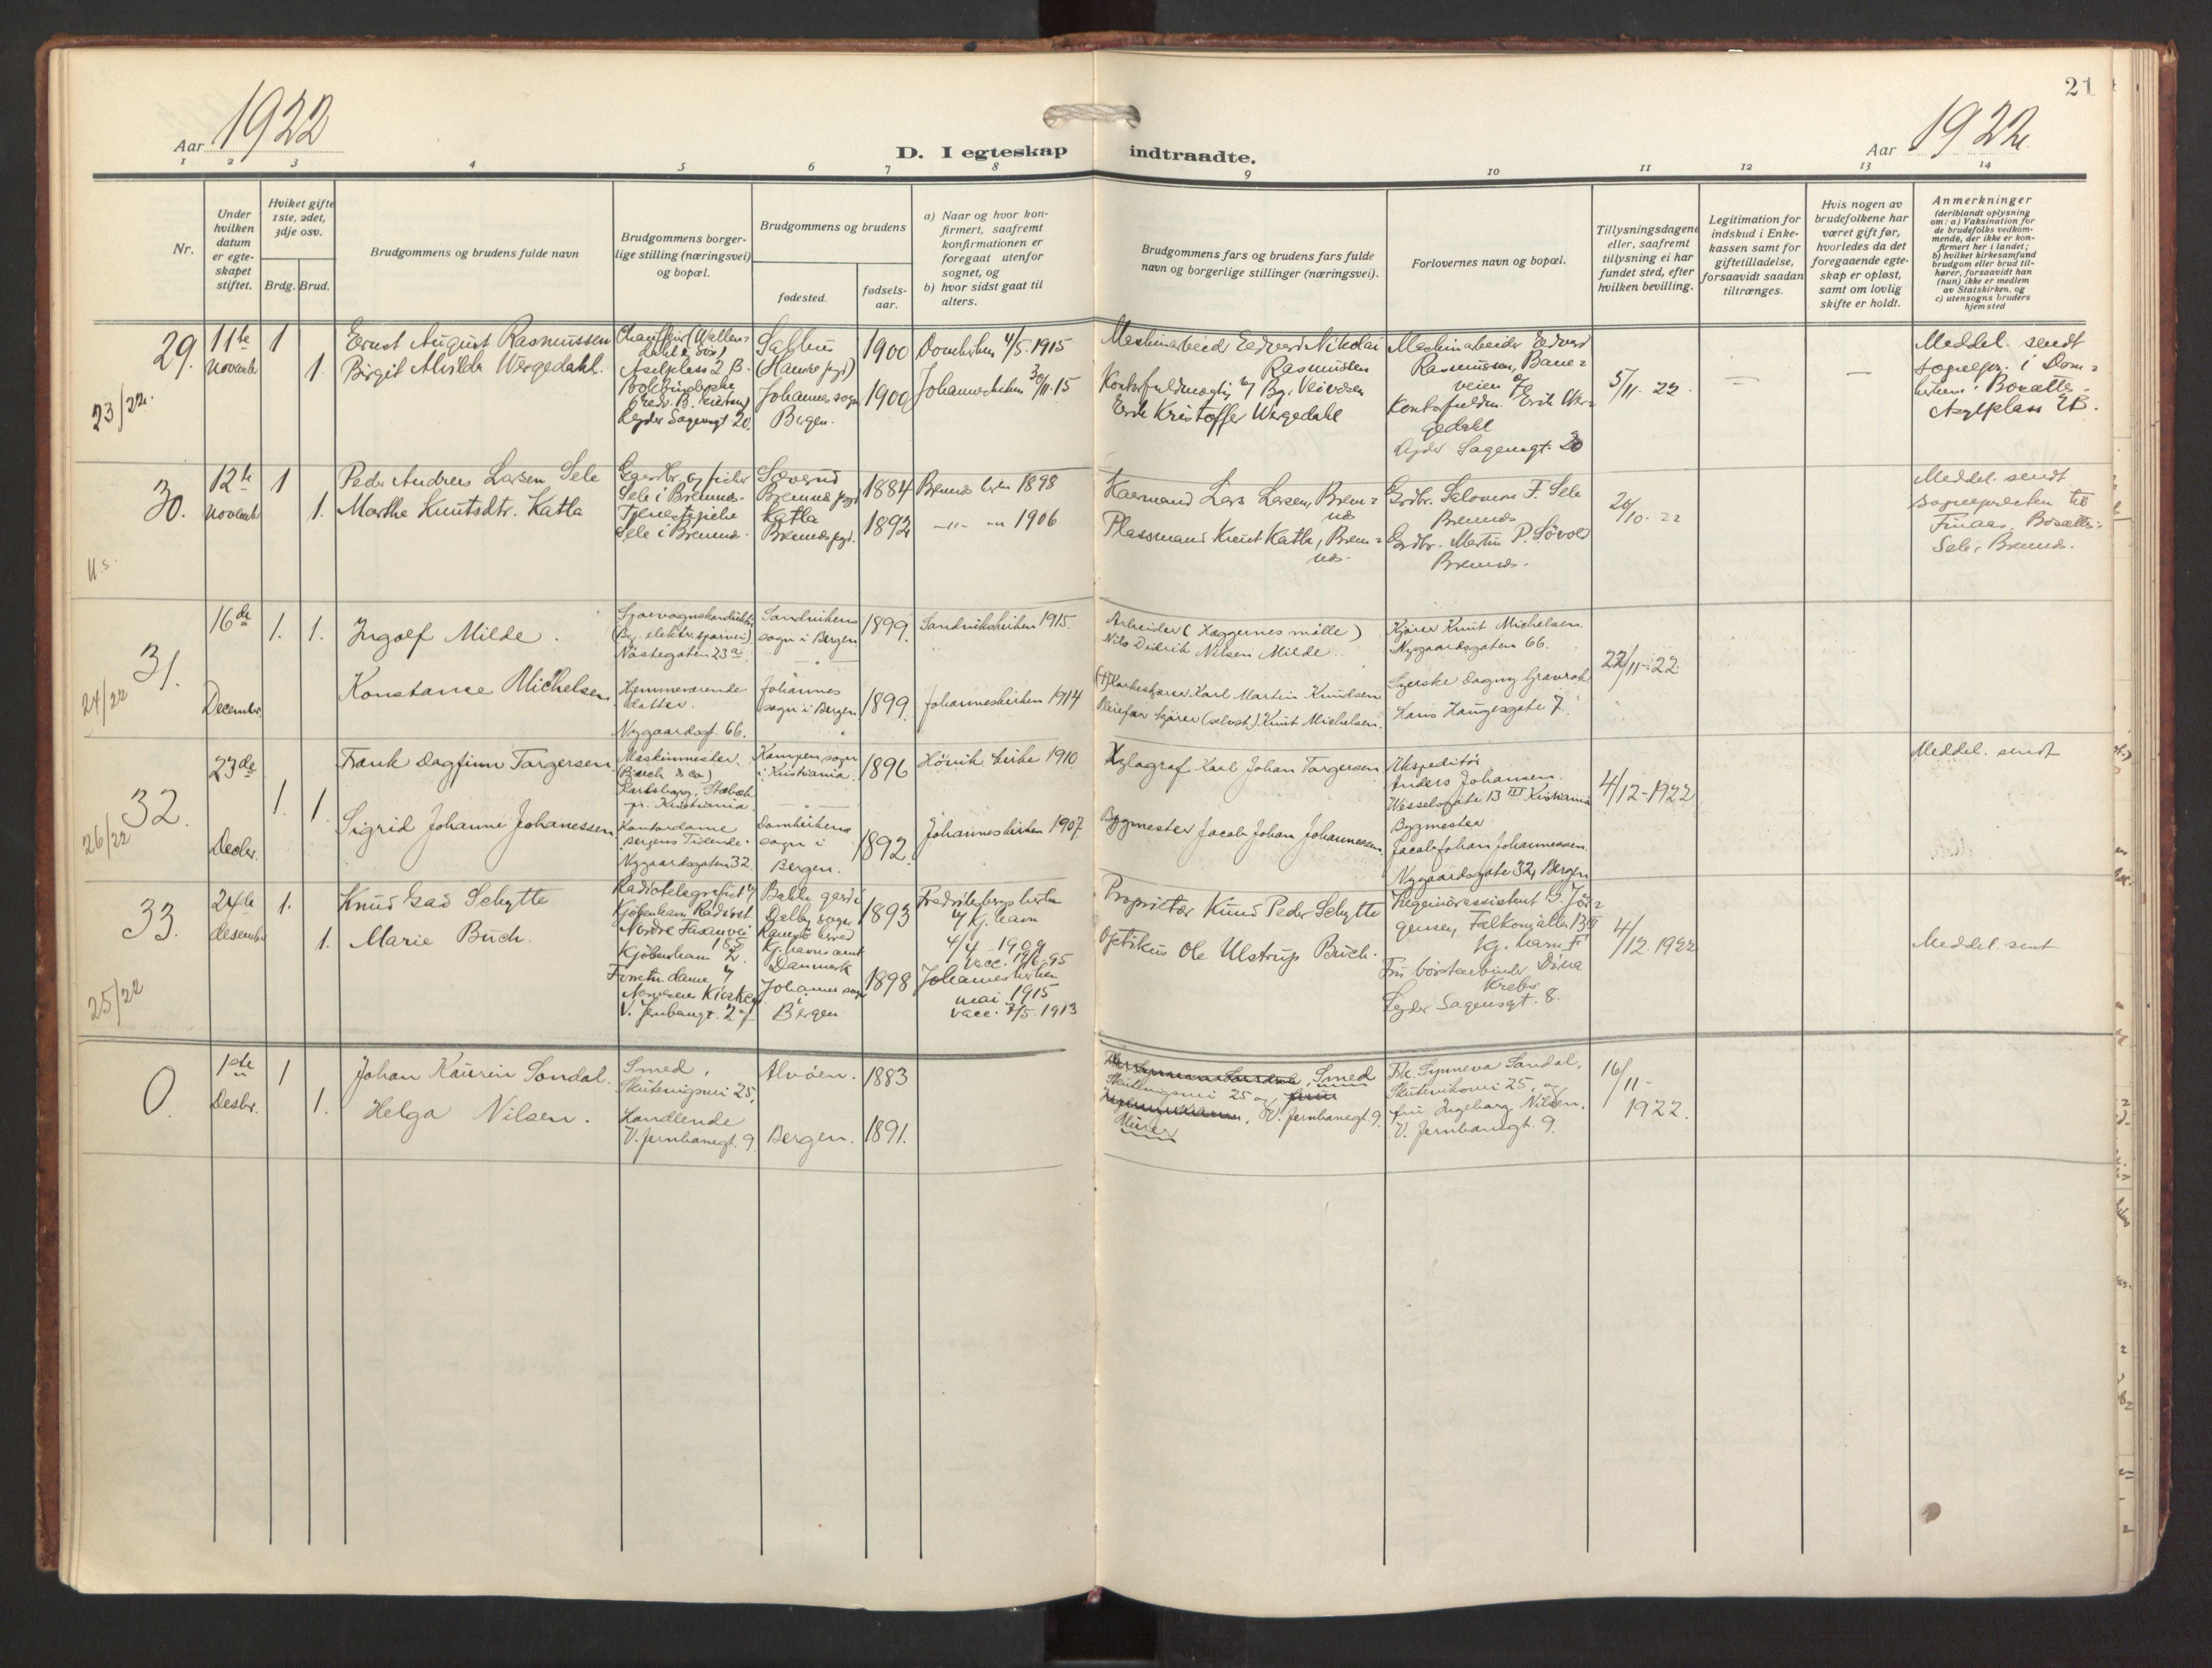 21
Aar 1922
D. I egteskap indtraadte.
Aar 1922
1 2 3 4 5 6 7 8 9 10 11 12 13 14
Nr.
Under hvilken datum er egte-skapet stiftet.
Hviket gifte 1ste, 2det, 3dje osv.
Brdg. Brud.
Brudgommens og brudens fulde navn
Brudgommens borger-lige stilling (næringsvei) og bopæl.
Brudgommens og brudens
fødested.
fødsels-aar.
a) Naar og hvor kon-firmert, saafremt konfirmationen er foregaat utenfor sognet, og
b) hvor sidst gaat til alters.
Brudgommens fars og brudens fars fulde navn og borgerlige stillinger (næringsvei).
Forlovernes navn og bopæl.
Tillysningsdagene eller, saafremt tillysning ei har fundet sted, efter hvilken bevilling.
Legitimation for indskud i Enke-kassen samt for giftetilladelse, forsaavidt saadan tiltrænges.
Hvis nogen av brudefolkene har været gift før, hvorledes da det foregaaende egte-skap er opløst, samt om lovlig skifte er holdt.
Anmerkninger
(deriblandt oplysning om: a) Vaksination for de brudefolks vedkom-mende, der ikke er kon-firmert her i landet; b) hvilket kirkesamfund brudgom eller brud til-hører, forsaavidt han (hun) ikke er medlem av Statskirken, og c) utensogns bruders hjemsted
29.
23/22.
11te Novembr.
1
1.
Ernst August Rasmussen
Birgit Alvilde Wergedahl.
Salhus
(Hamre pgd)
Johannes sogn
Bergen.
1900
1900
Domkirken 4/5. 1915
Johanneskirken 30/11. 15
Maskinarbeider Edvard Nikolai
Rasmussen
Erik Kristoffer Wergedahl
Maskinarbeider Edvard
Rasmussen,
Kontorfuldm. Erik Wer-
gedahl
5/11 - 22.
—
—
Meddel. sendt
sognepr. i Dom-
kirken. Bosættes.
30.
U.s.
12te Novembr.
1
1.
Peder Andreas Larsen Sele
Marthe Knutsdtr. Katla
Gaardbr. og fisker
Sele i Bremnes.
Tjenestepike
Sele i Bremnes.
Bremnes pgd.
Katla
Bremnes pgd.
1884
1892
Bremnes 1898
—"— —"— 1906.
Kaarmand Lars Larsen, Brem-
nes
Plassmand Knut Katla, Brem-
nes.
Grdbr. Salomon F. Sele
Bremnes
Grdbr. Martin P. Løvold
Bremnes.
29/10 - 22
Meddel. sendt
sognepresten til
Finaas. Bosættes:
Sele, Bremnes.
31.
24/22
16de Decembr.
1. 1.
Ingolf Milde.
Konstance Michelsen
Sporvognskonduktør
(Brg. elektr. sporvei)
Nöstegaten 23a
Hjemmeværende
datter.
Nygaardsgt. 66.
Sandvikens
sogn i Bergen
Johannes
sogn i Bergen
1899.
1899.
Sandvikskirken 1915.
Johanneskirken 1914
Arbeider (Vaggernes mölle)
Nils Didrik Nilsen Milde.
Karl Martin Knudsen
Pleiefar kjører (selvst.) Knut Michelsen.
Kjører Knut Michelsen.
Nygaardsgaten 66.
Syerske Dagny Gravrok
Hans Haugesgate 7.
22/11 - 22.
32.
26/22
23de Decbr.
1. 1.
Frank Dagfinn Torgersen.
Sigrid Johanne Johanessen
Maskinmester
Stabæk
pr. Kristiania
Kontordame
Bergens Tidende.
Nygaardsgaten 32.
Kampen sogn
i Kristiania.
Domkirkens
sogn i
Bergen.
1896
1892.
Hövik kirke 1910.
Johanneskirken 1907.
Xylograf Karl Johan Torgersen
Bygmester Jacob Johan Johannessen.
Ekspeditör
Anders Johansen.
Wesselsgate 13 III Kristiania
Bygmester
Jacob Johan Johannessen.
Nygaardsgate 32, Bergen
4/12 - 1922
Meddel. sendt
33.
25/22
24de desembr
1.
1.
Knud Gad Schytte
Marie Buch.
Radiotelegrafist v/
Kjöbenhavn Radiost.
Nordre Fasanvei
155
Kjöbenhavn
V. Jernbanegt. 2
Bakke gaard i
Dalby sogn
Kj.havns amt
Danmark
Johannes sogn
i
Bergen
1893
1898
Fredriksbergs kirke
v/ Kj.havn
4/4 1909
Johanneskirken
mai 1915
vacc. 7/5. 1913
Proprietær Knud Peder Schytte
Optikus Ole Ulstrup Buch.
Ingeniörassistent G. Jör-
gensen, Falkonerallé 13 III
Kj. havn F
Fru börstenbinder Dina
Krebs
Lyder Sagensgt. 8.
4/12. 1922
Meddel. sent
0.
1ste Desbr.
1
1.
Johan Kaurin Sondal.
Helga Nilsen.
Smed,
Skuteviksvei 25.
Handlende
V. Jernbanegt. 9
Alvøen.
Bergen.
1883
1891.
Smed
Skuteviksvei 25 og
V. Jernbanegt. 9.
Murer
Frk. Synneva Sandal,
Skuteviksvei 25, og
fru Ingeborg Nilsen,
V. Jernbanegt. 9.
16/11 -
1922.